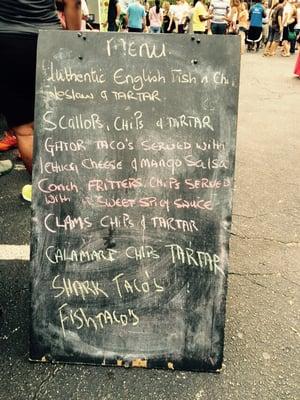 MENU
Authentic English Fish n Chi
leslaw & TARTAR.
SCALLOPS, CHIPS & TARTAR
GATOR TACO'S SERVED WITH
CHEESE & MANGO SALSA
CONCH FRITTERS. CHIPS SERVED
WITH SWEET SPICY SAUCE
CLAMS CHIPS & TARTAR
CALAMARI CHIPS TARTAR
SHARK TACO'S
FISHTACO'S